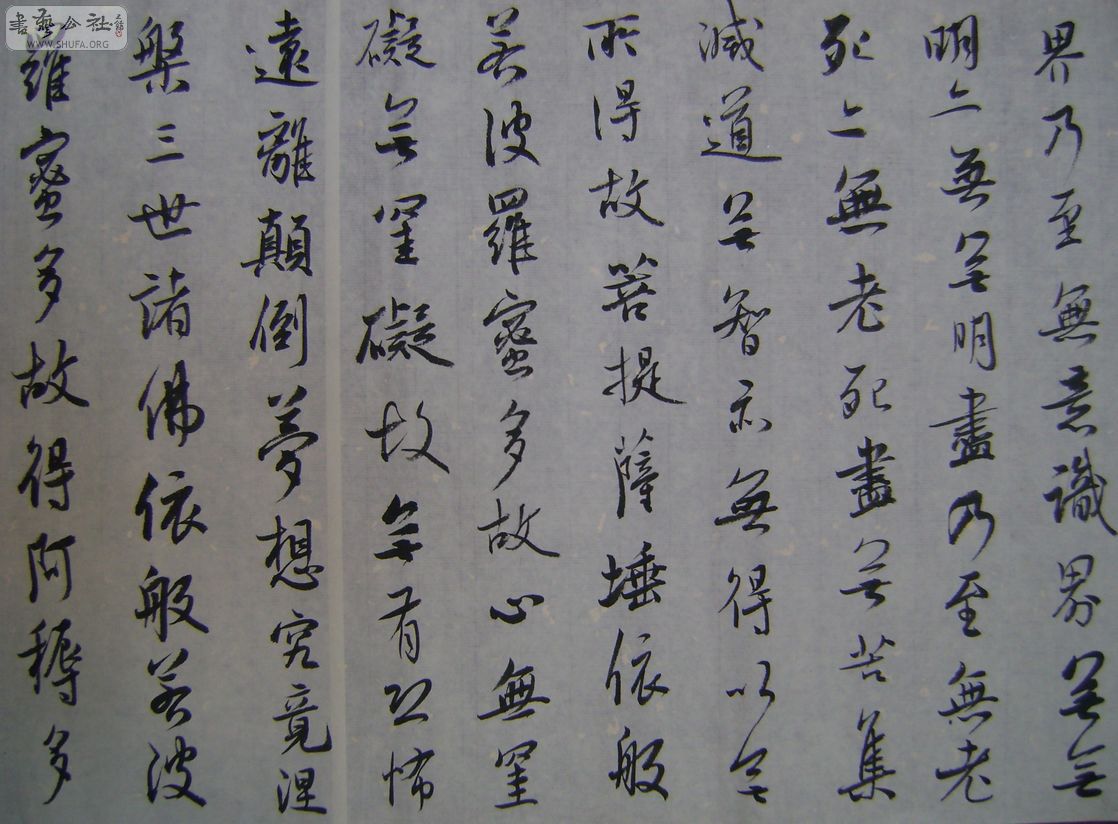 界乃至無意識界無無
明亦無無明盡乃至無老
死亦無老死盡無苦集
滅道無智亦無得以無
所得故菩提薩埵依般
若波羅蜜多故心無罣
礙無罣礙故無有恐怖
遠離顛倒夢想究竟涅
槃三世諸佛依般若波
羅蜜多故得阿耨多
書藝公社
WWW.SHUFA.ORG